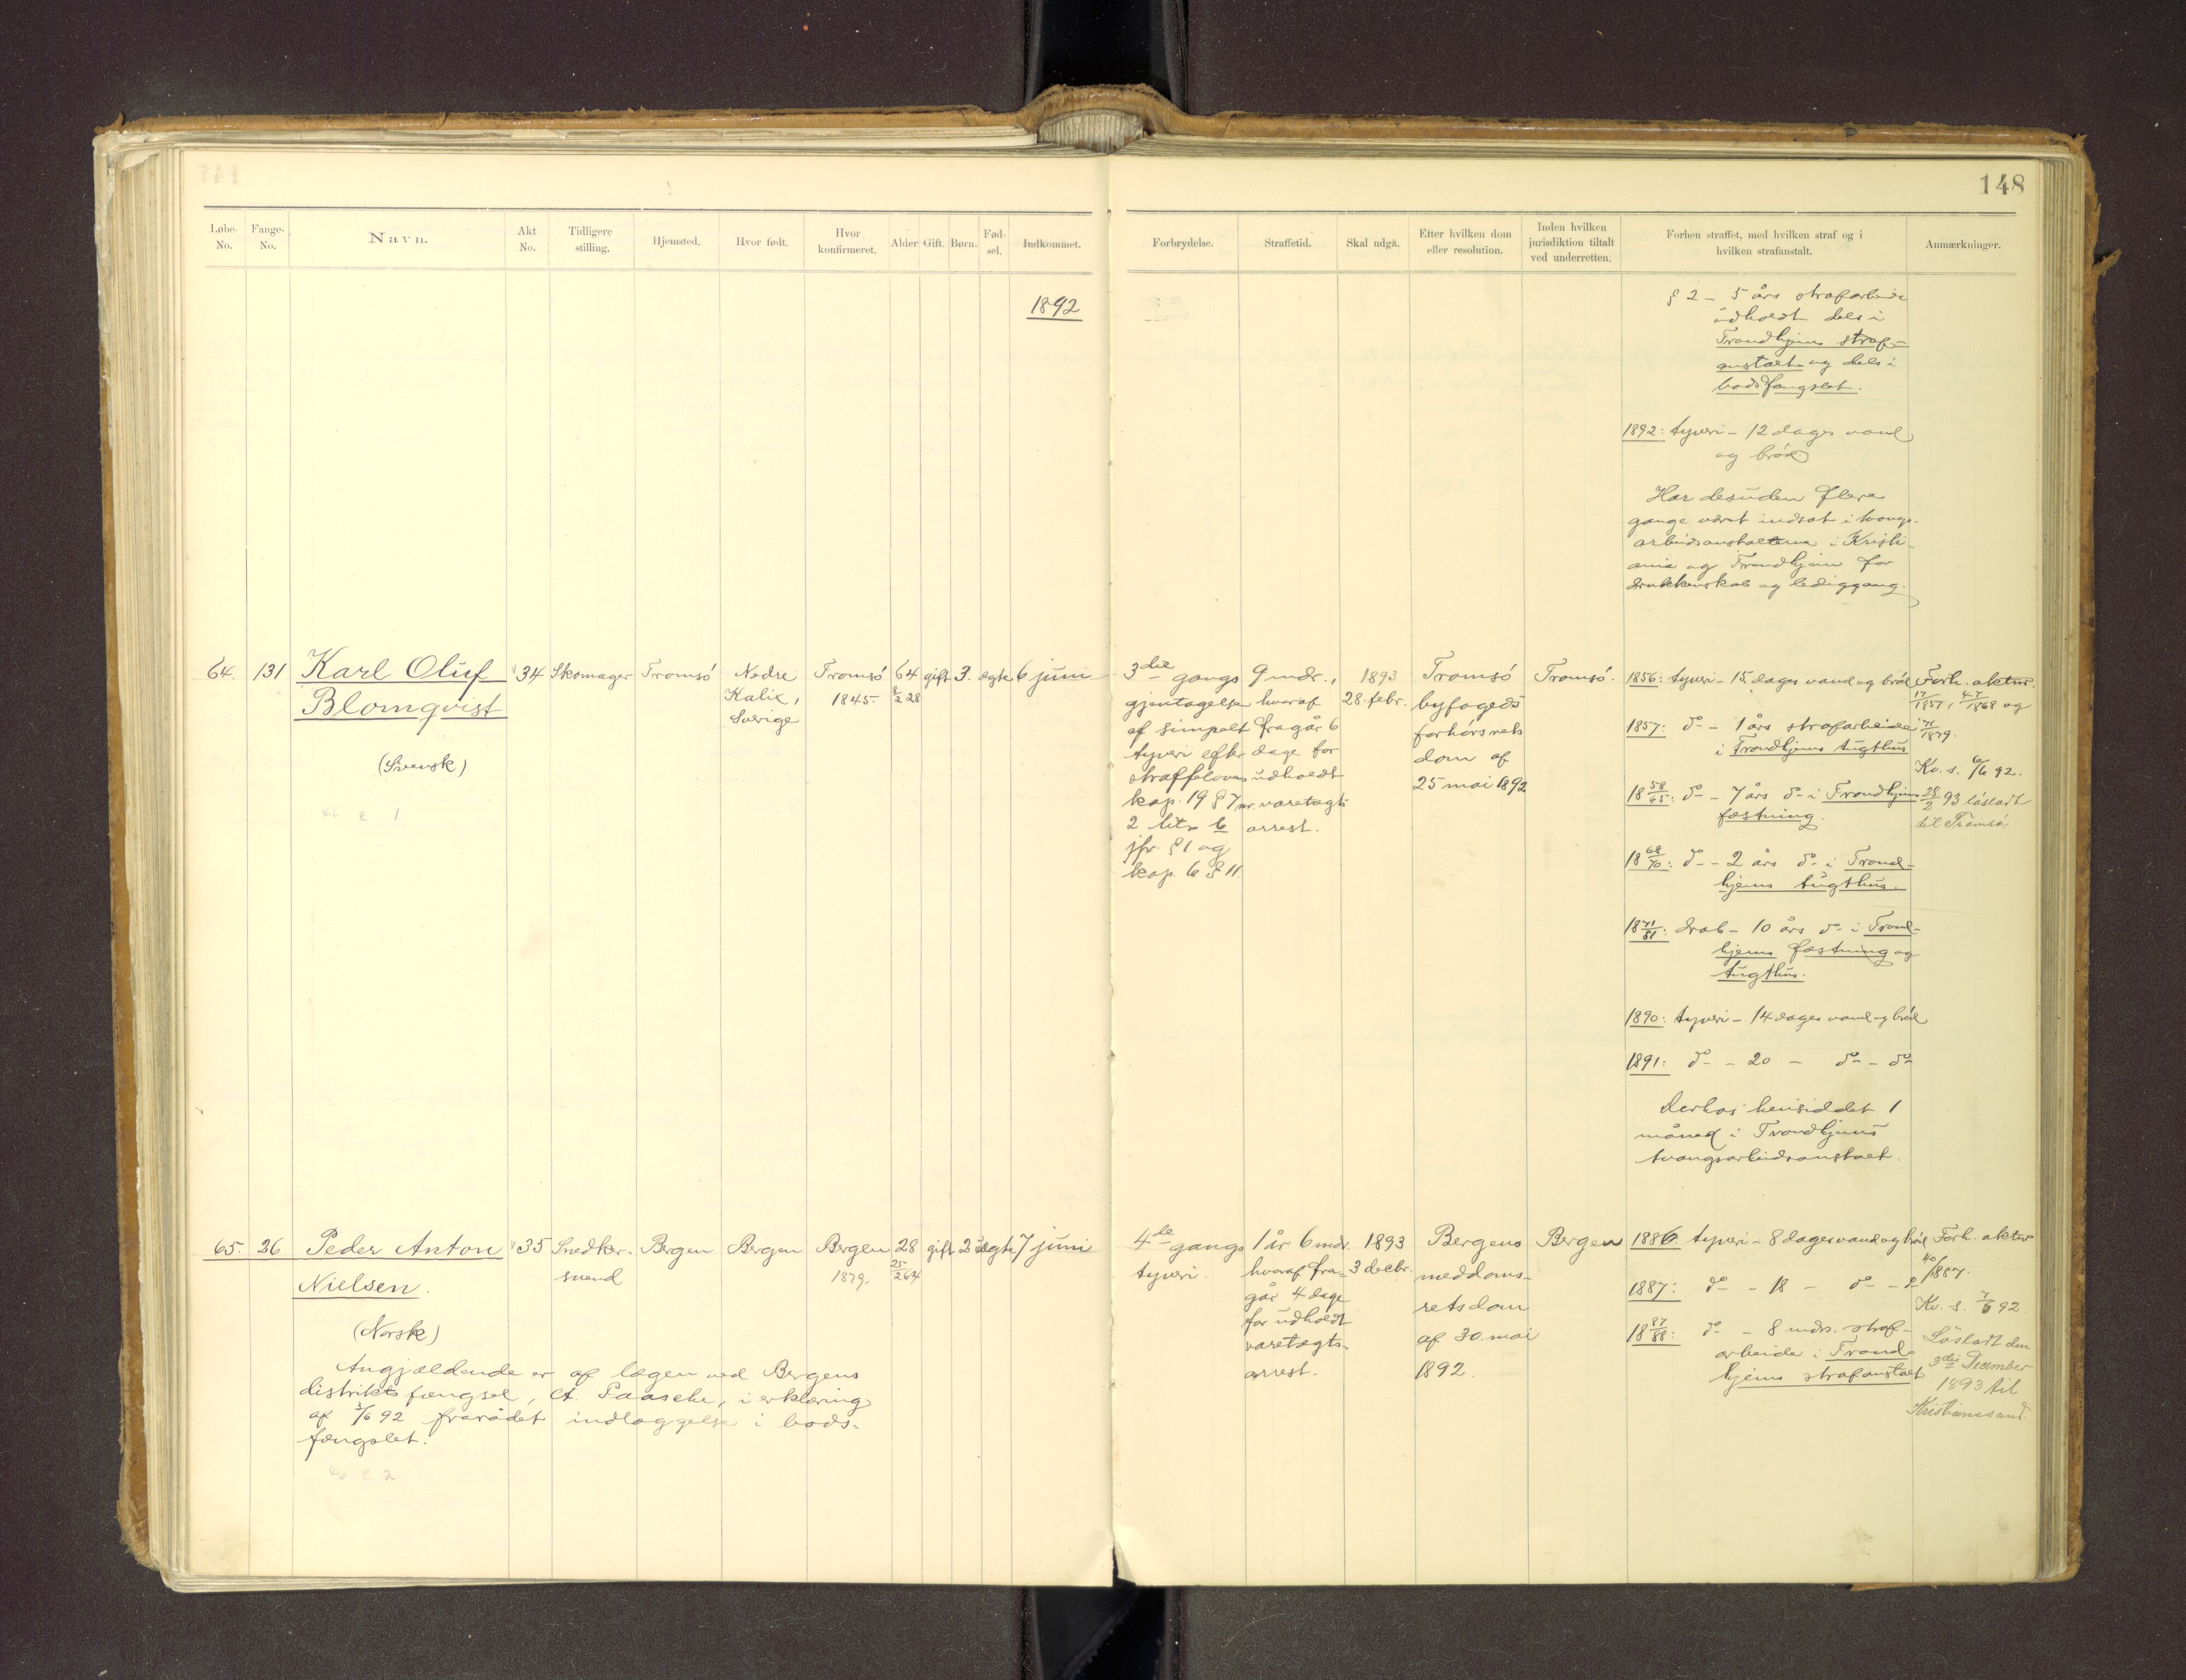 148
Løbe-No.
Fange-No.
Navn.
Akt No.
Tidligere stilling.
Hjemsted.
Hvor født.
Hvor konfirmeret.
Alder
Gift.
Børn.
Fød-sel.
Indkommet.
Forbrydelse.
Straffetid.
Skal udgå.
Efter hvilken dom eller resolution.
Inden hvilken jurisdiktion tiltalt ved underretten.
Forhen straffet, med hvilken straf og i hvilken strafanstalt.
Anmærkninger.
1892
§ 2 – 5 års strafarbeide
udholdt dels i
Trondhjems straf-
anstalt og dels i
bodsfængslet.
1892: tyveri – 12 dages vand
og brød
Har desuden flere
gange været indsat i tvangs-
arbeidsanstalterne i Kristi-
ania og Trondhjem for
drukkenskab og lediggang.
64.
131
Karl Oluf
Blomqvist
(Svensk)
46 e 1
34
Skomager
Tromsö
Nedre
Kalix,
Sverige
Tromsö
1845.
64
8/2 28
gift
3.
ægte
6 juni
3die gangs
gjentagelse
af simpelt
tyveri efter
straffelovens
kap. 19 § 7 nr.
2 litr b
jfr. § 1 og
kap. 6 § 11
9 mdr.,
hvoraf
fragår 6
dage for
udholdt
varetægts
arrest.
1893
28. febr.
Tromsö
byfogeds
forhörsrets
dom af
25 mai 1892
Tromsö.
1856: tyveri – 15 dages vand og bröd
1857: do – 1 års strafarbeide
i Trondhjems tugthus
18 58/65: do – 7 års do i Trondhjems
fæstning.
18 68/70: do – 2 års do i Trond-
hjems tugthus.
18 71/81: drab – 10 års do i Trond-
hjems fæstning og
tugthus.
1890: tyveri – 14 dages vand og bröd
1891: do – 20 – do – do
Derhos hensiddet 1
måned i Trondhjems
tvangsarbeidsanstalt.
Forh. aktnr.
17/1857, 47/1868 og
71/1879.
Kv. s. 6/6 92.
28/2 93 lösladt
til Tromsö
65.
26
Peder Anton
Nielsen.
(Norsk)
Angjældende er af lægen ved Bergens
distriktsfængsel, Paasche, i erklæring
af 3/6 92 frarådet indlæggelse i bods-
fængslet.
46 e 2
35
Snedker-
svend
Bergen
Bergen
Bergen
1879.
28
25/2 64
gift
2
ægte
7 juni
4de gangs
tyveri.
1 år 6 mdr.
hvoraf fra-
går 4 dage
for udholdt
varetægts-
arrest.
1893
3 decbr.
Bergens
meddoms-
retsdom
af 30. mai
1892.
Bergen
1886. tyveri – 8 dages vand og bröd
1887: do – 18 – do – do
18 87/88: do – 8 mdrs. straf-
arbeide i Trond-
hjems strafanstalt
Forh. aktnr
40/1887.
Kv. s. 7/6 92.
Lösladt den
3die December
1893 til
Kristianssund.